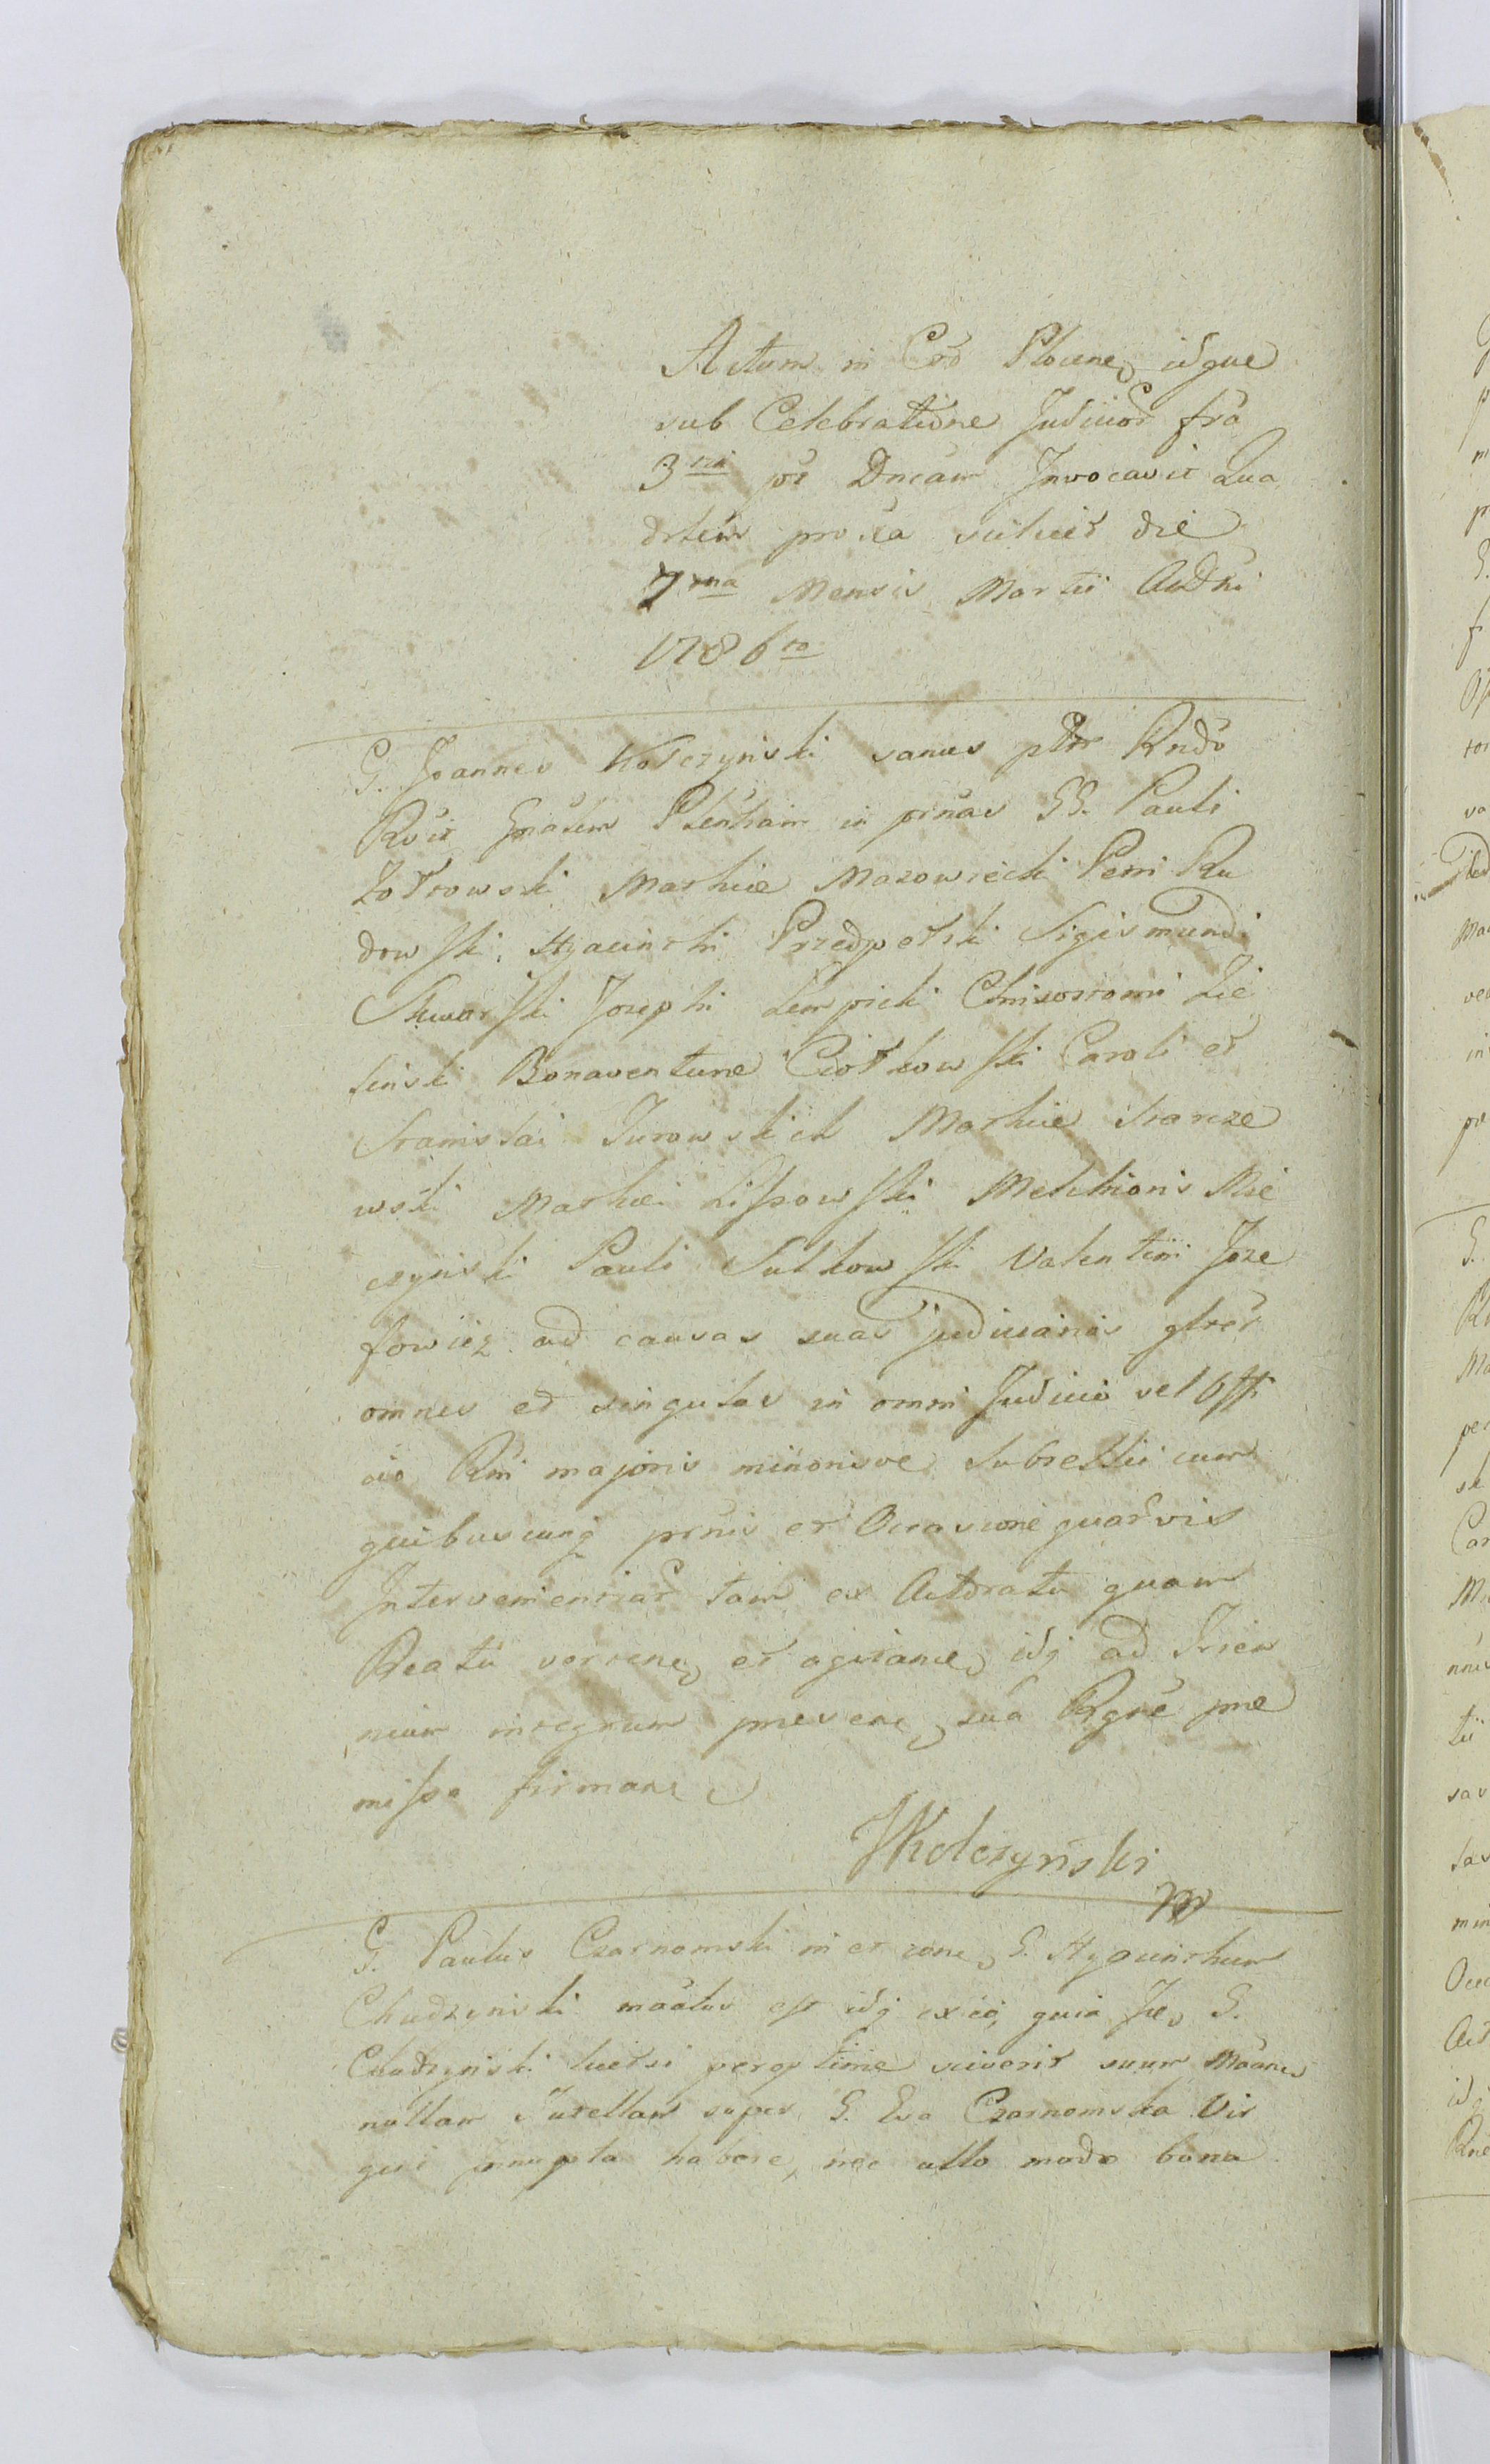 Actum in Crō Plocene idque
sub Celebratione Judicior fra
3tia pōs Dncam Invocavit Qua
drlem proxa scilicet die
7ma Mensis Martii AōDni
1786to
G. Joannes Kołczynski sanus Rndo
Rōit Gnalem Plentiam in prnas GG. Pauli
Zołtowski Mathiæ Mazowiecki Petri Ru
dowski, Hyacinthi Przedpełski Sigismundi
Skwarski Josephi Lempicki Chrisostomi Zie
linski Bonaventuræ Ciołkowski Caroli et
Stanislai Zurowskich Mathiæ
wski Mathæi Lissowski Melchioris Mie
czynski Pauli Sulkowski Valentini Joze
fowicz ad causas suas judiciarias glrēr
omnes et singulas in omni Judicio vel Offi
cio Rni majoris minorisve Subsellii cum
quibuscunq prnis et Occasione quarvis
Intervenientiar tam ex Actoratu quam
Reatu verten et agitan idq ad Trien
nium integrum sua Rgne præ
missa firman
JKolczyński
mp
G. Paulus Czarnomski G. Hyacinthum
Chudzynski māatus est idq ex eo, quia G.
Chudzynski licet si peroptime sciverit suum
nullam Tutellam super G. Eva Czarnomska Vir
gini Innupta habere, nec ullo modo bona